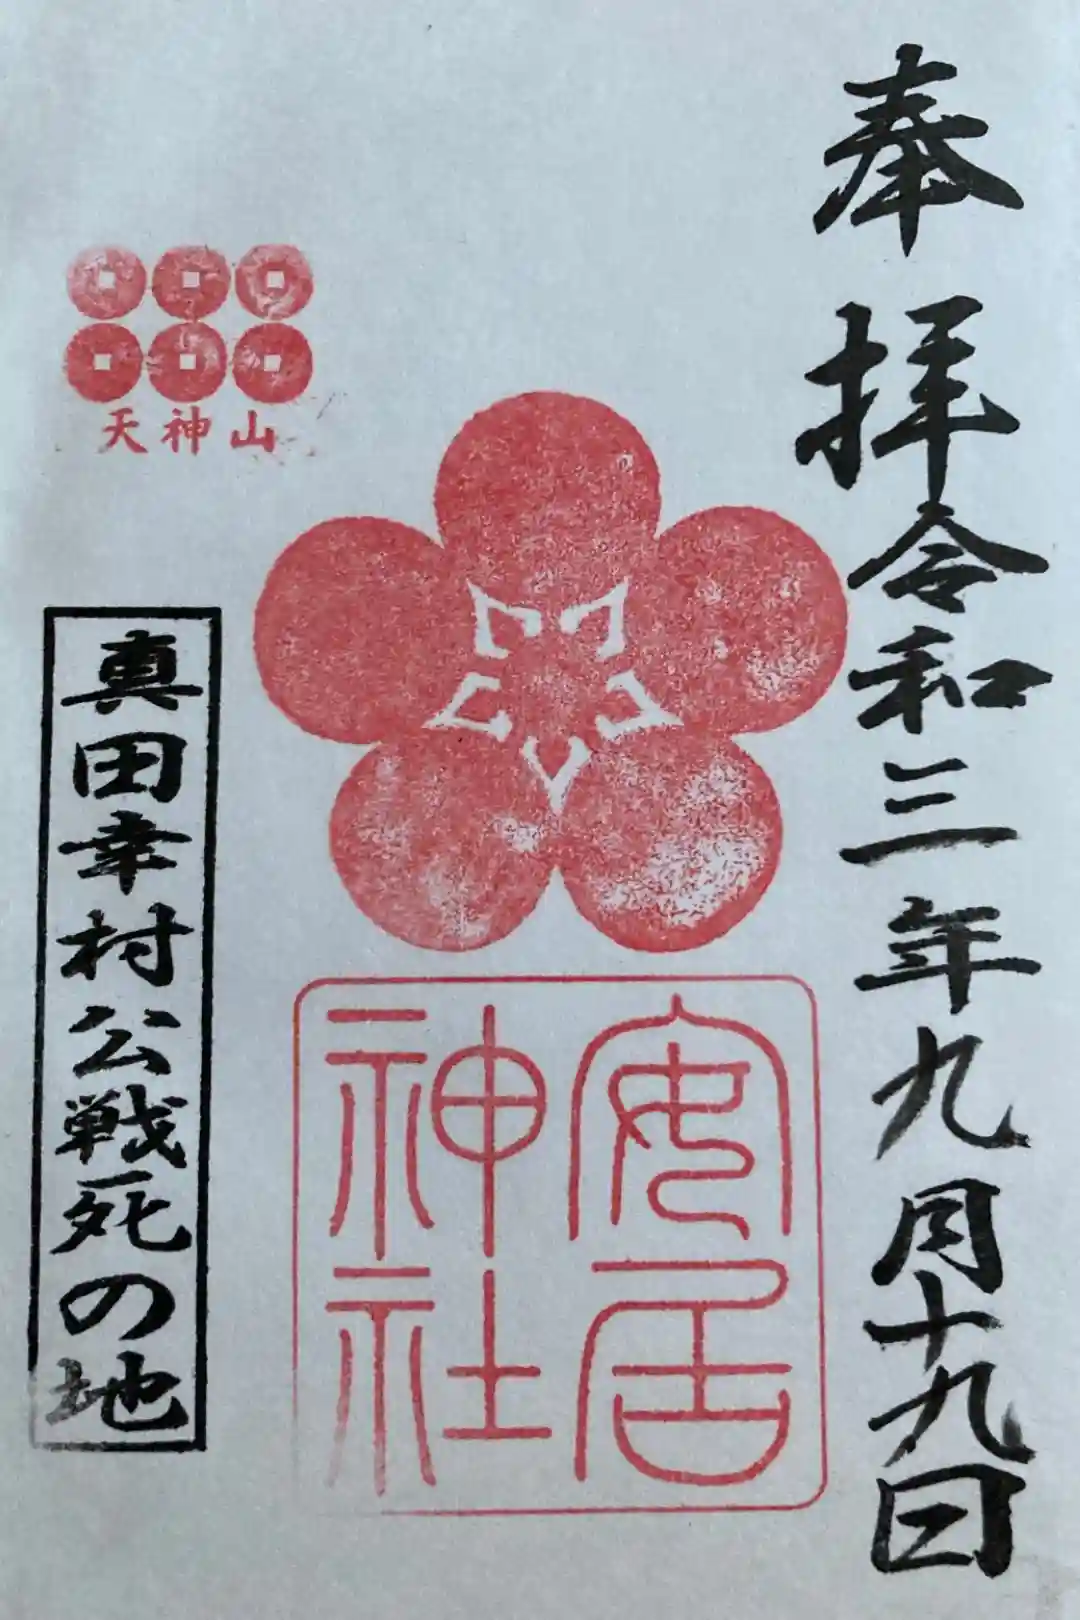 奉拝
令和三年九月十九日
安居
神社
天神山
真田幸村公戦死の地